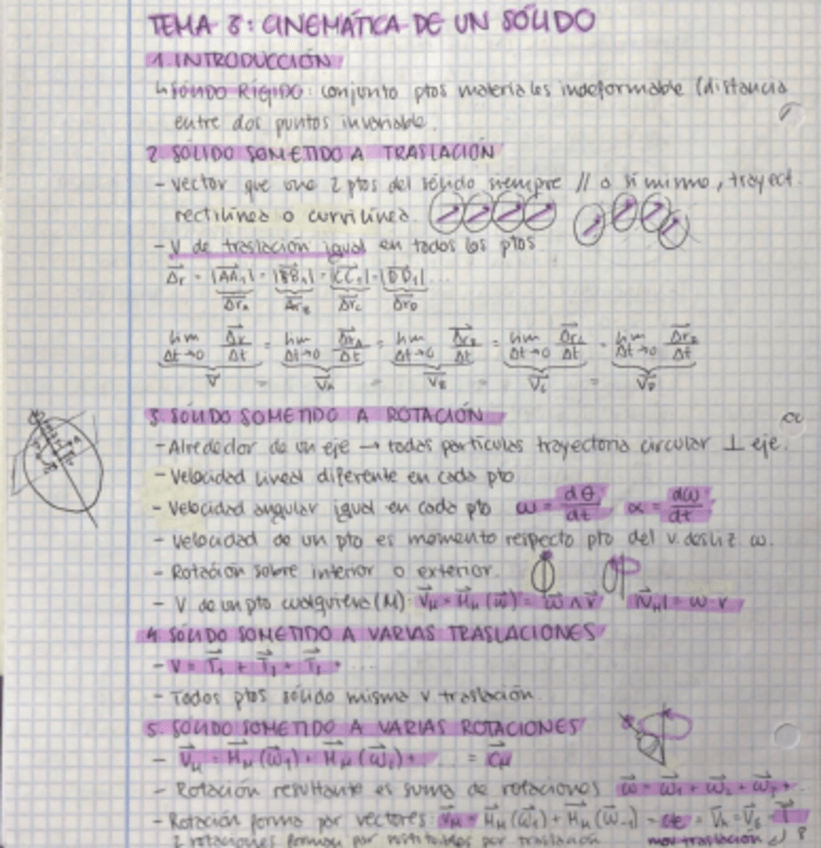 TEMA 3: CINEMÁTICA DE UN SÓLIDO
1. INTRODUCCIÓN
↳ SÓLIDO RÍGIDO: conjunto ptos materiales indeformable (distancia
entre dos puntos invariable.
2. SÓLIDO SOMETIDO A TRASLACIÓN
- Vector que une 2 ptos del sólido siempre // a sí mismo, trayect.
rectilínea o curvilínea.
- V de traslación igual en todos los ptos
Δr = |AA₁| = |BB₁| = |CC₁| = |DD₁| ...
Δr_A Δr_B Δr_C Δr_D
lim Δt→0 Δr/Δt = lim Δt→0 Δr_A/Δt = lim Δt→0 Δr_B/Δt = lim Δt→0 Δr_C/Δt = lim Δt→0 Δr_D/Δt
V = V_A = V_B = V_C = V_D
3. SÓLIDO SOMETIDO A ROTACIÓN
- Alrededor de un eje → todas partículas trayectoria circular ⊥ eje.
- Velocidad lineal diferente en cada pto
- Velocidad angular igual en cada pto ω = dθ/dt α = dω/dt
- Velocidad de un pto es momento respecto pto del v. desliz. ω.
- Rotación sobre interior o exterior.
- V de un pto cualquiera (M): V_M = M_M(ω) = ω ∧ r |V_M| = ω · r
4. SÓLIDO SOMETIDO A VARIAS TRASLACIONES
- V = T₁ + T₂ + T₃ + ...
- Todos ptos sólido misma v traslación.
5. SÓLIDO SOMETIDO A VARIAS ROTACIONES
- V_M = M_M(ω₁) + M_M(ω₂) + ... = C_M
- Rotación resultante es suma de rotaciones ω = ω₁ + ω₂ + ω₃ + ..
- Rotación forma par vectores: V_M = M_M(ω₁) + M_M(ω₋₁) = cte = V_A = V_B = T
2 rotaciones forman par sustituibles por traslación mov traslación